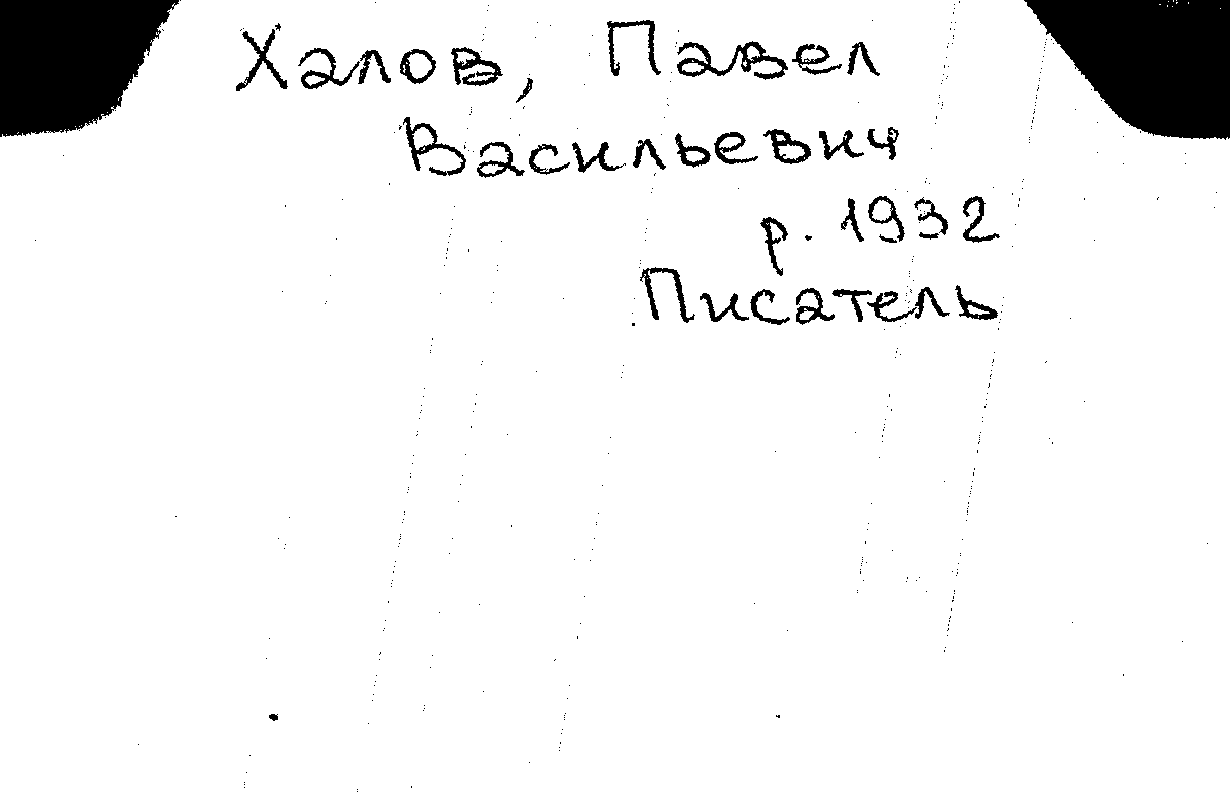 Халов, Павел
Васильевич
р. 1932
Писатель